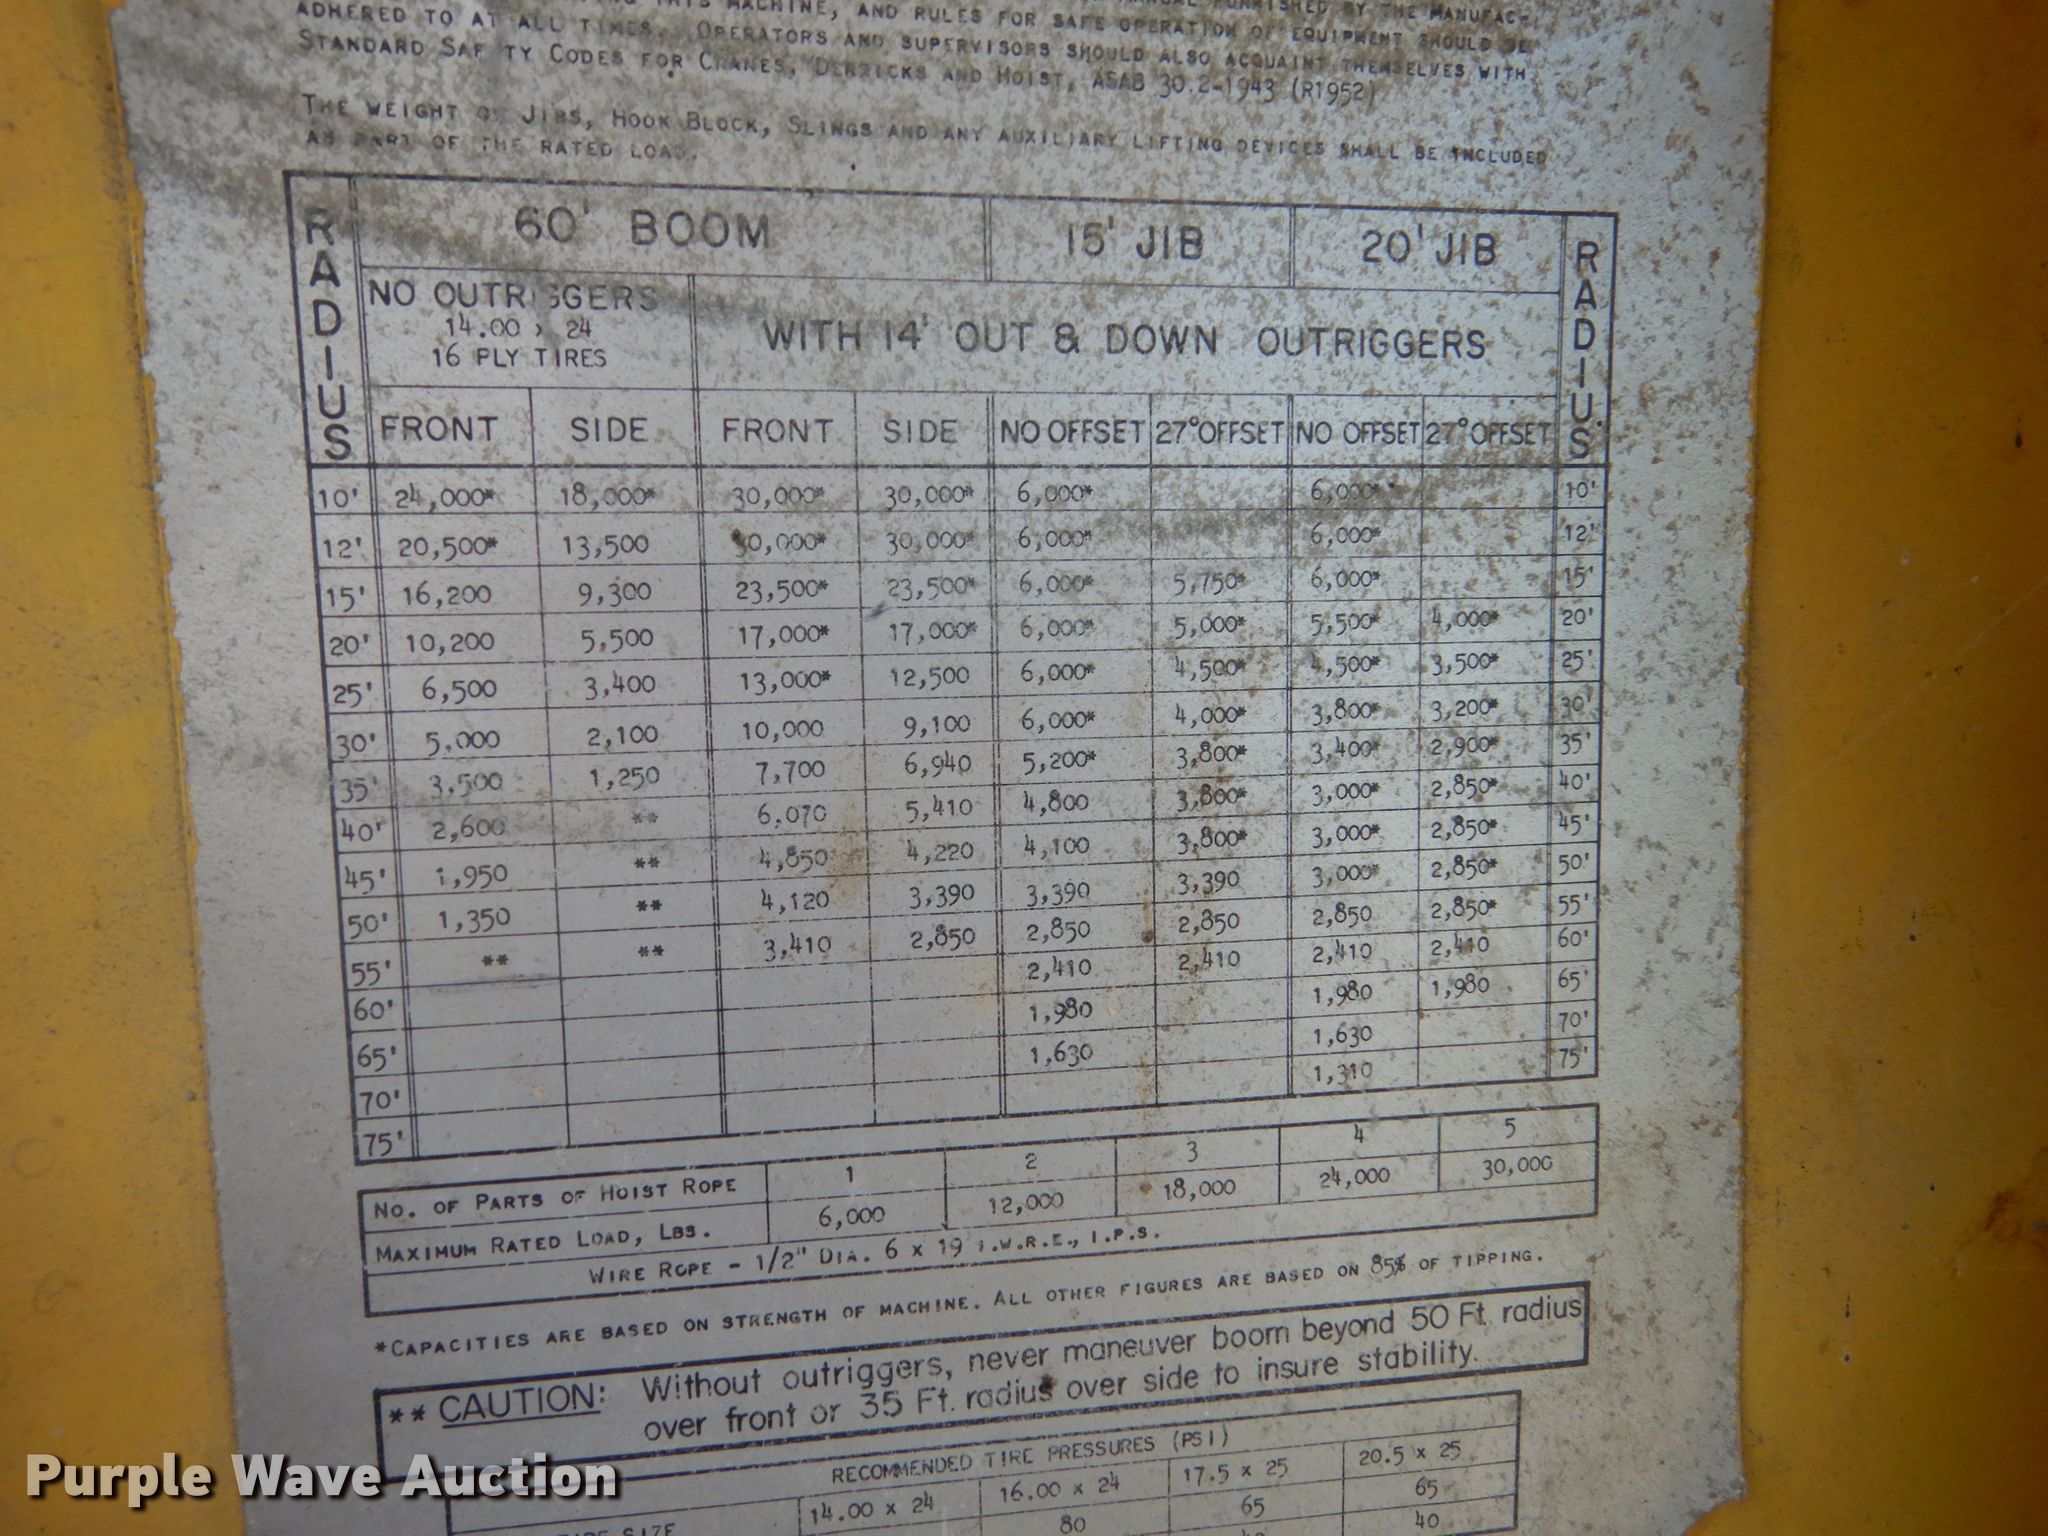 THIS MACHINE, AND RULES FOR SAFE OPERATION OF EQUIPMENT SHOULD BE
ADHERED TO AT ALL TIMES. OPERATORS AND SUPERVISORS SHOULD ALSO ACQUAINT THEMSELVES WITH
STANDARD SAF TY CODES FOR CRANES, DERRICKS AND HOIST, ASAB 30.2-1943 (R1952)
THE WEIGHT OF JIBS, HOOK BLOCK, SLINGS AND ANY AUXILIARY LIFTING DEVICES SHALL BE INCLUDED
AS PART OF THE RATED LOAD.
RADIUS 60' BOOM 15' JIB 20' JIB RADIUS
NO OUTRIGGERS
14.00 x 24
16 PLY TIRES
WITH 14' OUT & DOWN OUTRIGGERS
FRONT SIDE FRONT SIDE NO OFFSET 27° OFFSET NO OFFSET 27° OFFSET
10' 24,000* 18,000* 30,000* 30,000* 6,000* 6,000* 10'
12' 20,500* 13,500 30,000* 30,000* 6,000* 6,000* 12'
15' 16,200 9,300 23,500* 23,500* 6,000* 5,750* 6,000* 15'
20' 10,200 5,500 17,000* 17,000* 6,000* 5,000* 5,500* 4,000* 20'
25' 6,500 3,400 13,000* 12,500 6,000* 4,500* 4,500* 3,500* 25'
30' 5,000 2,100 10,000 9,100 6,000* 4,000* 3,800* 3,200* 30'
35' 3,500 1,250 7,700 6,940 5,200* 3,800* 3,400* 2,900* 35'
40' 2,600 ** 6,070 5,410 4,800 3,800* 3,000* 2,850* 40'
45' 1,950 ** 4,850 4,220 4,100 3,800* 3,000* 2,850* 45'
50' 1,350 ** 4,120 3,390 3,390 3,390 3,000* 2,850* 50'
55' ** ** 3,410 2,850 2,850 2,850 2,850 2,850* 55'
60' 2,410 2,410 2,410 2,410 60'
65' 1,980 1,980 1,980 65'
70' 1,630 1,630 70'
75' 1,310 75'
NO. OF PARTS OF HOIST ROPE 1 2 3 4 5
MAXIMUM RATED LOAD, LBS. 6,000 12,000 18,000 24,000 30,000
WIRE ROPE - 1/2" DIA. 6 x 19 I.W.R.C., I.P.S.
*CAPACITIES ARE BASED ON STRENGTH OF MACHINE. ALL OTHER FIGURES ARE BASED ON 85% OF TIPPING.
** CAUTION: Without outriggers, never maneuver boom beyond 50 Ft. radius
over front or 35 Ft. radius over side to insure stability.
RECOMMENDED TIRE PRESSURES (PSI)
SIZE 14.00 x 24 16.00 x 24 17.5 x 25 20.5 x 25
80 65 65
40
Purple Wave Auction